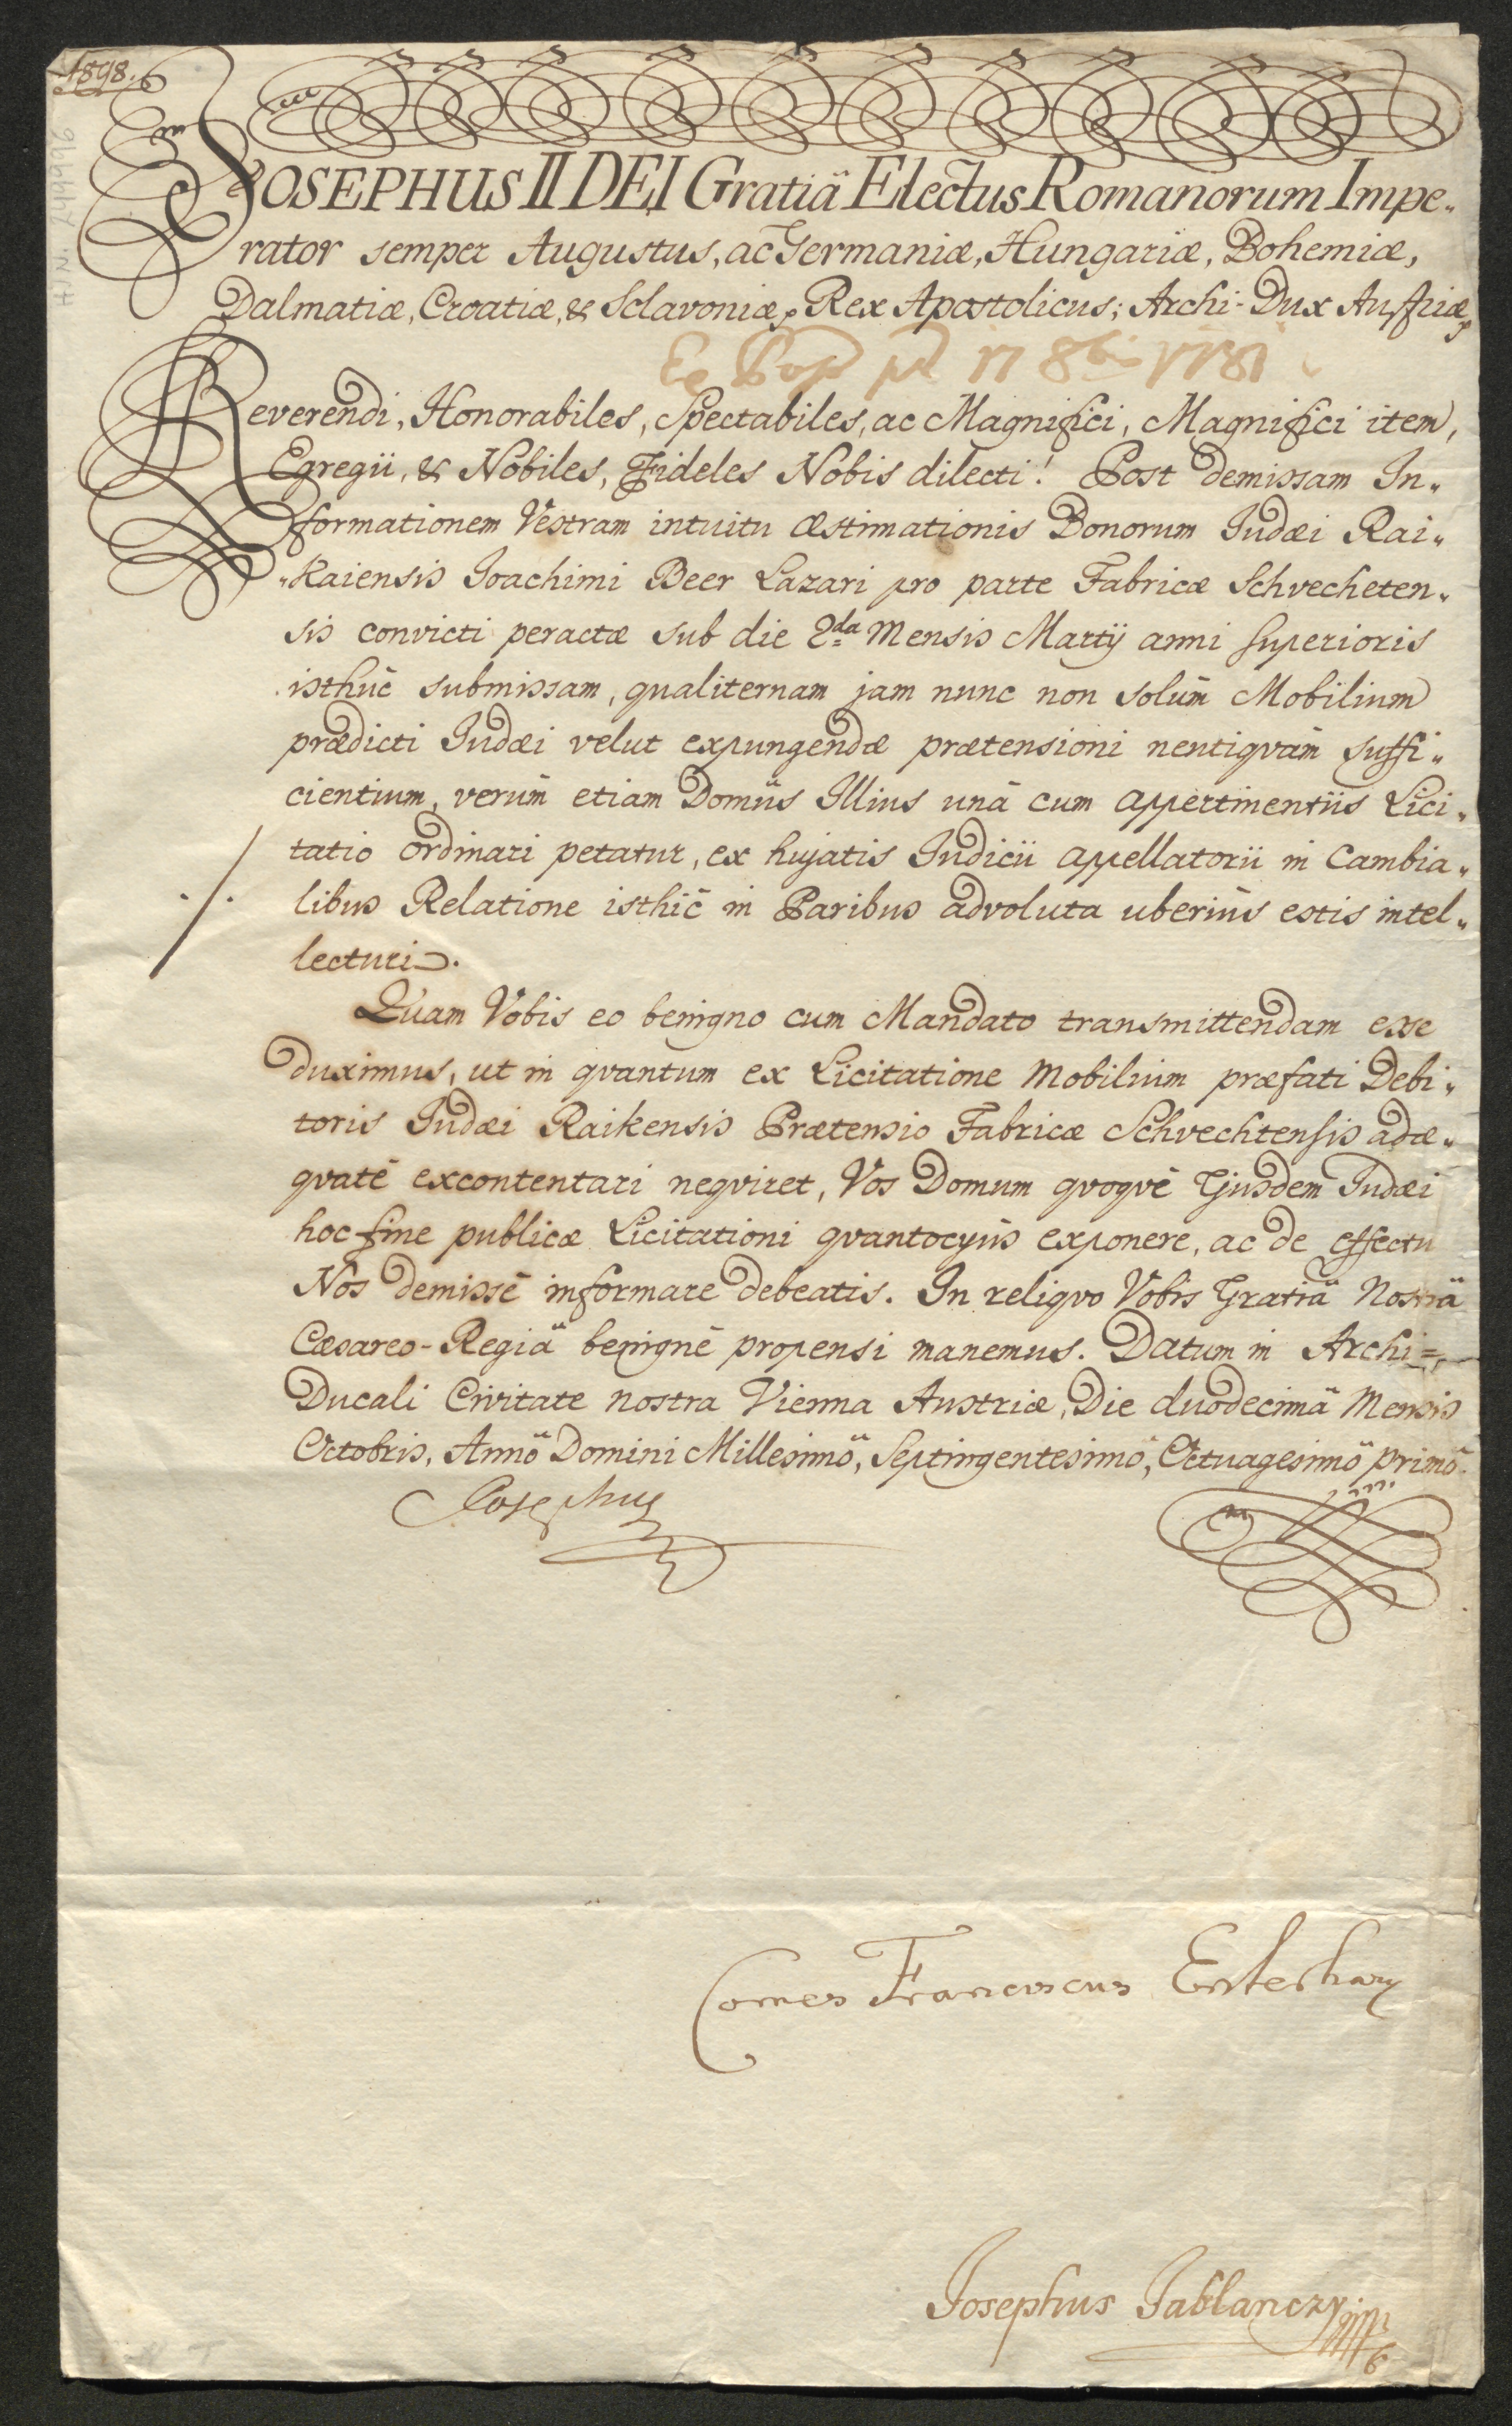 1898.
JOSEPHUS II DEI Gratiâ Electus Romanorum Impe„
rator semper Augustus, ac Germaniæ, Hungariæ, Bohemiæ,
Dalmatiæ, Croatiæ, & Sclavoniæ, Rex Apostolicus; Archi-Dux Austriæ,
17 8bris 1781
Reverendi, Honorabiles, Spectabiles, ac Magnifici, Magnifici item,
Egregii, & Nobiles, Fideles Nobis dilecti! Post demissam In„
formationem Vestram intuitu æstimationis Bonorum Judæi Rai„
„kaiensis Joachimi Beer Lazari pro parte Fabricæ Schvecheten„
sis convicti peractæ sub die 2da Mensis Martÿ anni superioris
isthùc submissam, qualiternam jam nunc non solùm Mobilium
prædicti Judæi velut expungendæ prætensioni nentiqvàm suffi„
cientium, verùm etiam Domûs Illius unà cum appertinentiis Lici„
tatio ordinari petatur, ex hujatis Judicii appellatorii in Cambia„
./. libus Relatione isthìc in Paribus advoluta uberiùs estis intel„
lecturi.
Quam Vobis eo benigno cum Mandato transmittendam esse
duximus, ut in qvantum ex Licitatione Mobilium præfati Debi„
toris Judæi Raikensis Prætensio Fabricæ Schvechtensis adæ„
qvatè excontentari neqviret, Vos Domum qvoqvè Ejusdem Judæi
hoc fine publicæ Licitationi qvantocyùs exponere, ac de effectu
Nos demissè informare debeatis. In reliqvo Vobis Gratiâ Nostrâ
Cæsareo-Regiâ benignè propensi manemus. Datum in Archi=
Ducali Civitate nostra Vienna Austriæ, Die duodecimâ Mensis
Octobris, Annô Domini Millesimô, Septingentesimô, Octuagesimô primô.
Josephus
Comes Franciscus Esterhazy
Josephus Jablanczy